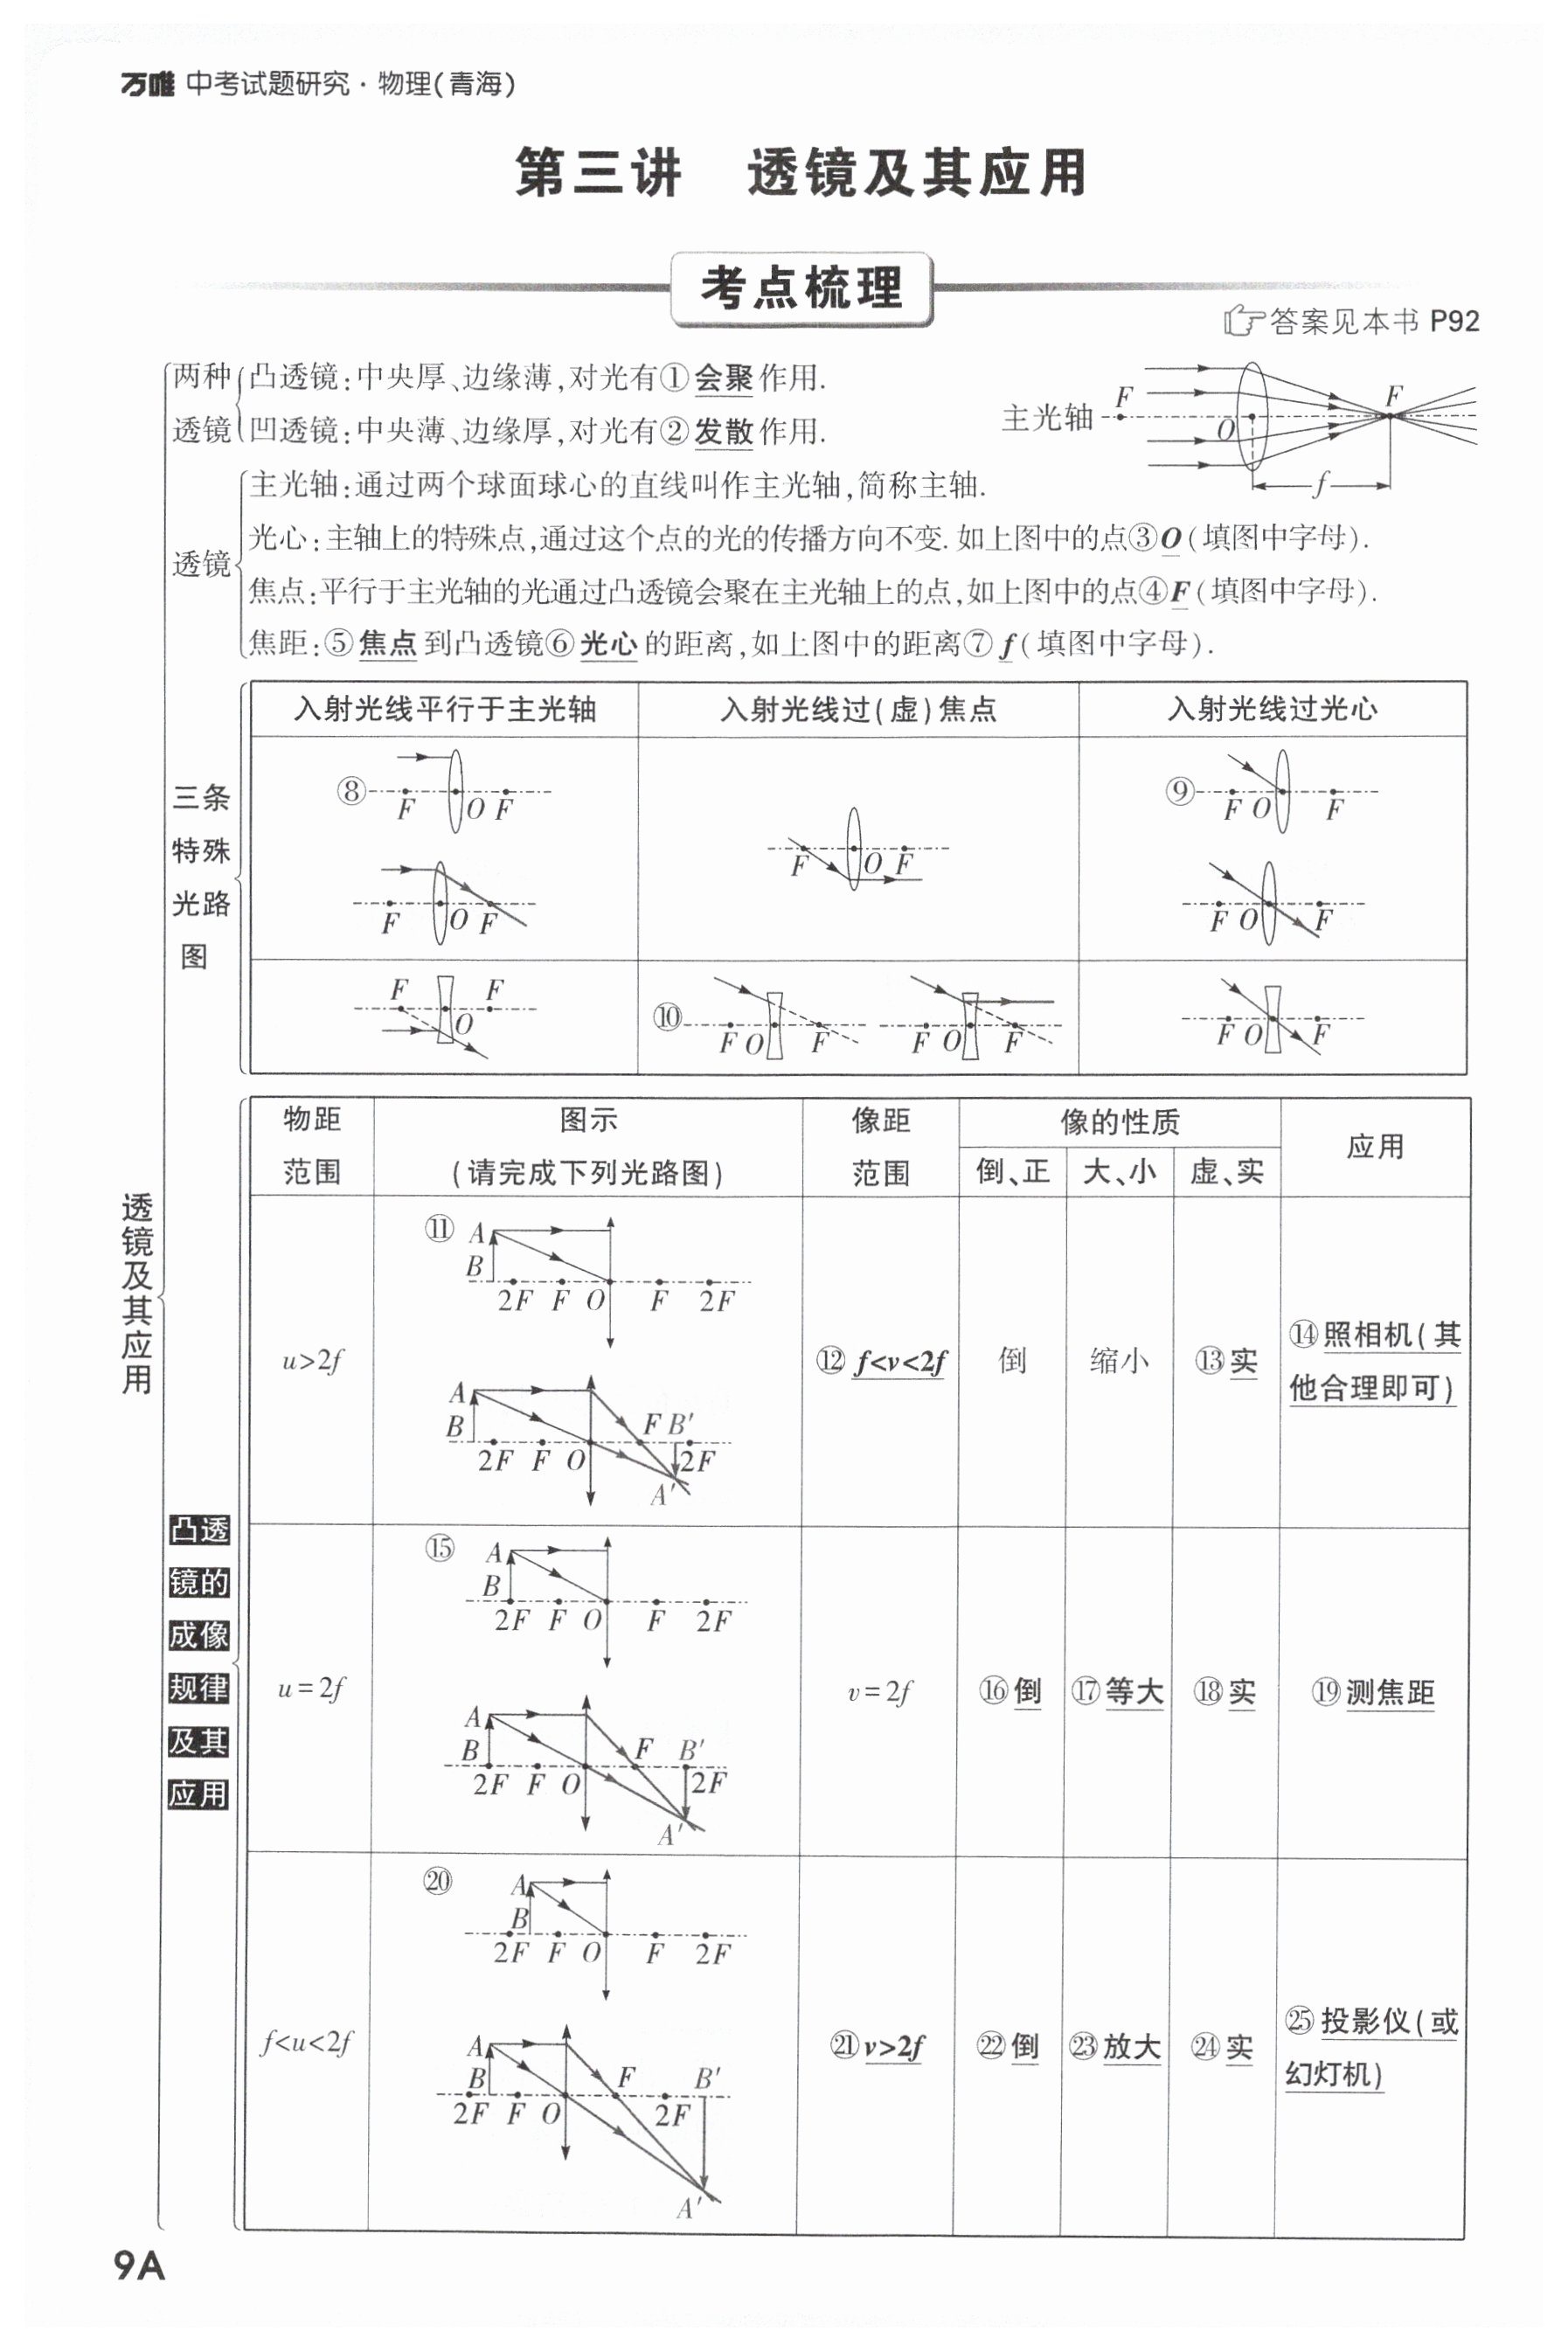 万唯 中考试题研究·物理(青海)
第三讲 透镜及其应用
考点梳理
答案见本书 P92
两种
透镜
凸透镜:中央厚、边缘薄,对光有①会聚作用.
凹透镜:中央薄、边缘厚,对光有②发散作用.
主光轴 F O F
f
透镜
主光轴:通过两个球面球心的直线叫作主光轴,简称主轴.
光心:主轴上的特殊点,通过这个点的光的传播方向不变.如上图中的点③O(填图中字母).
焦点:平行于主光轴的光通过凸透镜会聚在主光轴上的点,如上图中的点④F(填图中字母).
焦距:⑤焦点到凸透镜⑥光心的距离,如上图中的距离⑦f(填图中字母).
三条
特殊
光路
图
入射光线平行于主光轴 入射光线过(虚)焦点 入射光线过光心
⑧ F O F
F O F
F O F
⑨ F O F
F O F
F F
O
⑩ F O F
F O F
F O F
透镜及其应用
凸透
镜的
成像
规律
及其
应用
物距
范围
图示
(请完成下列光路图)
像距
范围
像的性质
倒、正 大、小 虚、实
应用
u>2f
⑪ A
B
2F F O F 2F
A
B F B′
2F F O 2F
A′
⑫ f<v<2f
倒
缩小
⑬实
⑭照相机(其
他合理即可)
u=2f
⑮ A
B
2F F O F 2F
A
B F B′
2F F O 2F
A′
v=2f
⑯倒
⑰等大
⑱实
⑲测焦距
f<u<2f
⑳ A
B
2F F O F 2F
A
B F B′
2F F O 2F
A′
㉑v>2f
㉒倒
㉓放大
㉔实
㉕投影仪(或
幻灯机)
9A